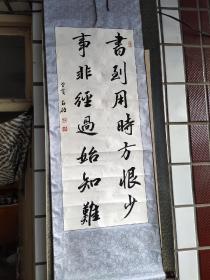 書到用時方恨少
事非經過始知難